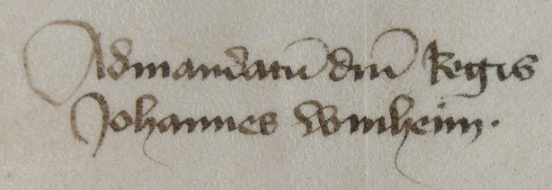 Admandatū dnī Regis
Johannes winheim.